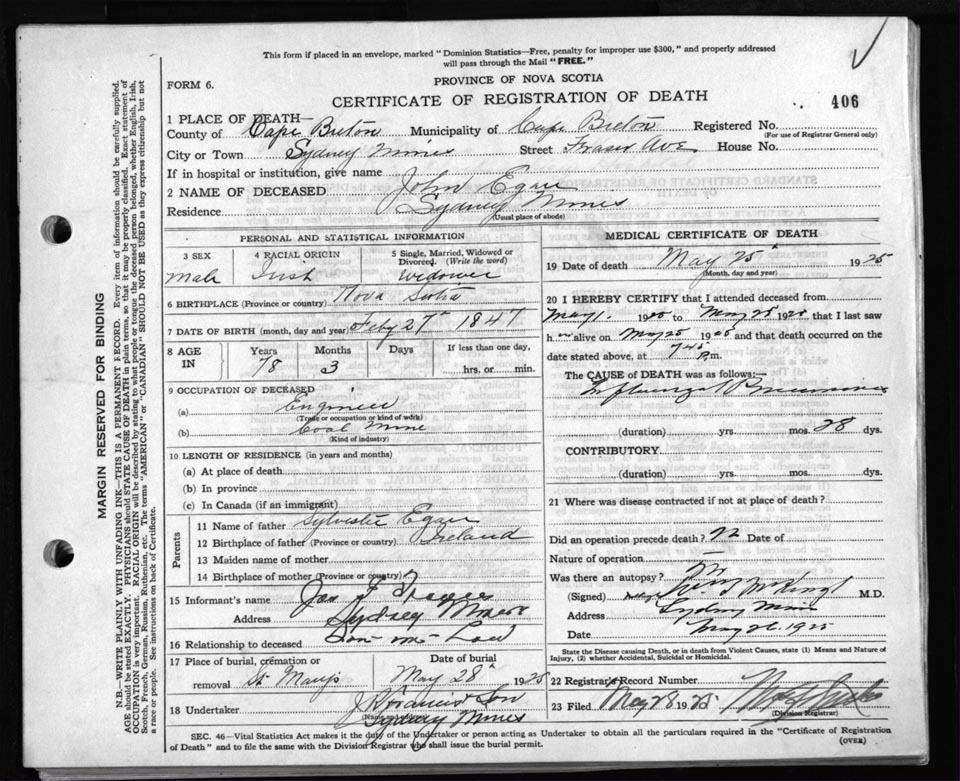 This form if placed in an envelope, marked "Dominion Statistics—Free, penalty for improper use $300," and properly addressed
will pass through the Mail "FREE."
FORM 6.
PROVINCE OF NOVA SCOTIA
CERTIFICATE OF REGISTRATION OF DEATH
406
1 PLACE OF DEATH—
County of Cape Breton Municipality of Cape Breton Registered No.
(For use of Registrar General only)
City or Town Sydney Mines Street Fraser Ave House No.
If in hospital or institution, give name
2 NAME OF DECEASED John Egan
Residence Sydney Mines
(Usual place of abode)
PERSONAL AND STATISTICAL INFORMATION
3 SEX 4 RACIAL ORIGIN 5 Single, Married, Widowed or Divorced (Write the word)
Male Irish Widower
6 BIRTHPLACE (Province or country) Nova Scotia
7 DATE OF BIRTH (month, day and year) Feby 27th 1847
8 AGE IN Years Months Days If less than one day,
78 3 hrs. or min.
9 OCCUPATION OF DECEASED
(a) Engineer
(Trade or occupation or kind of work)
(b) Coal Mine
(Kind of industry)
10 LENGTH OF RESIDENCE (in years and months)
(a) At place of death
(b) In province
(c) In Canada (if an immigrant)
Parents
11 Name of father Sylvester Egan
12 Birthplace of father (Province or country) Ireland
13 Maiden name of mother
14 Birthplace of mother (Province or country)
15 Informant's name Jas F
Address Sydney Mines
16 Relationship to deceased Son-in-Law
17 Place of burial, cremation or removal St Marys Date of burial May 28th 1925
18 Undertaker J Francis & Son
(Name and address)
Sydney Mines
MEDICAL CERTIFICATE OF DEATH
19 Date of death May 25th 1925
(Month, day and year)
20 I HEREBY CERTIFY that I attended deceased from
May 1. 1925 to May 25 1925 that I last saw
h im alive on May 25 1925 and that death occurred on the
date stated above, at 7 45 P.m.
The CAUSE of DEATH was as follows:—
Influenzal Pneumonia
(duration) yrs. mos. 28 dys.
CONTRIBUTORY
(duration) yrs. mos. dys.
21 Where was disease contracted if not at place of death?
Did an operation precede death? no Date of
Nature of operation —
Was there an autopsy? no
(Signed) M.D.
Address Sydney Mines
Date May 26. 1925
State the Disease causing Death, or in death from Violent Causes, state (1) Means and Nature of
Injury, (2) whether Accidental, Suicidal or Homicidal.
22 Registrar's Record Number
23 Filed May 28 1925
(Division Registrar)
SEC. 46—Vital Statistics Act makes it the duty of the Undertaker or person acting as Undertaker to obtain all the particulars required in the "Certificate of Registration
of Death" and to file the same with the Division Registrar who shall issue the burial permit.
(OVER)
MARGIN RESERVED FOR BINDING
N.B.—WRITE PLAINLY WITH UNFADING INK—THIS IS A PERMANENT RECORD. Every item of information should be carefully supplied.
AGE should be stated EXACTLY. PHYSICIANS should STATE CAUSE OF DEATH in plain terms, so that it may be properly classified. Exact statement of
OCCUPATION is very important. RACIAL ORIGIN will be described by stating to what people or tongue the deceased person belonged, whether English, Irish,
Scotch, French, German, Russian, Ruthenian, etc. The terms "AMERICAN" or "CANADIAN" SHOULD NOT BE USED as they express citizenship but not
a race or people. See instructions on back of Certificate.